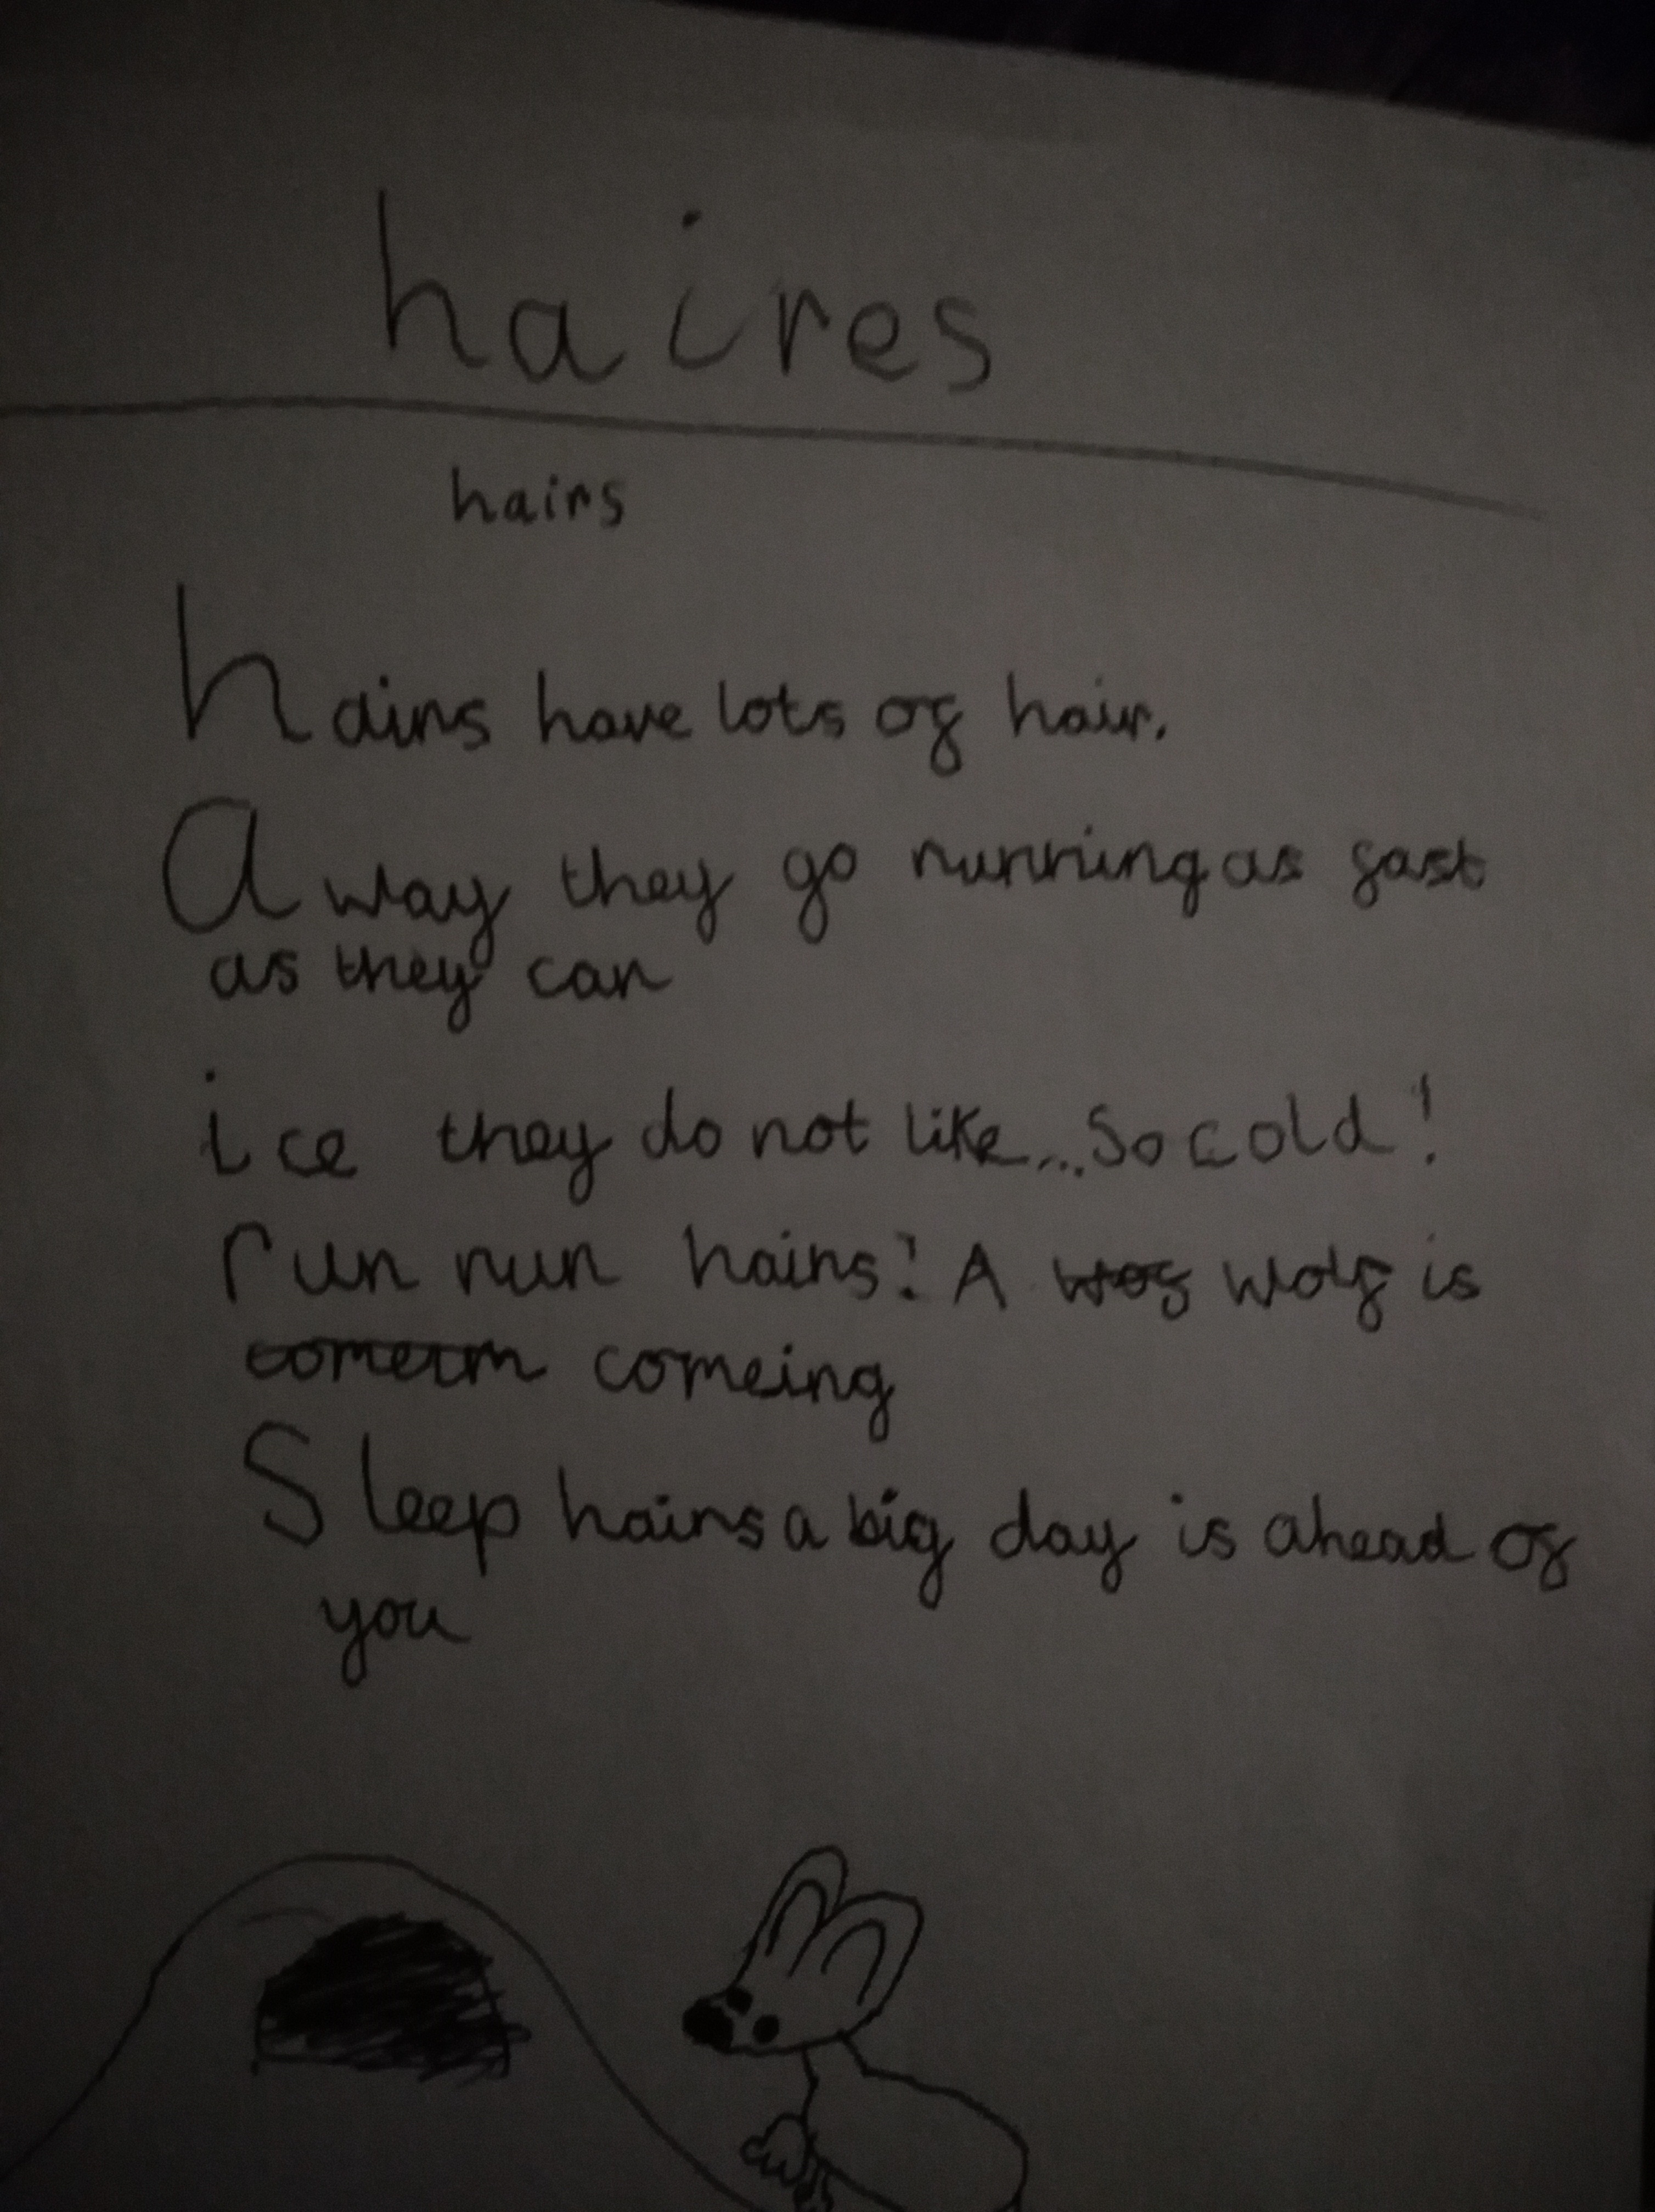 haires
hairs
hairs have lots of hair.
away they go running as fast
as they can
ice they do not like...So cold!
run run hairs! A wof wolf is
comeim comeing
Sleep hairs a big day is ahead of
you